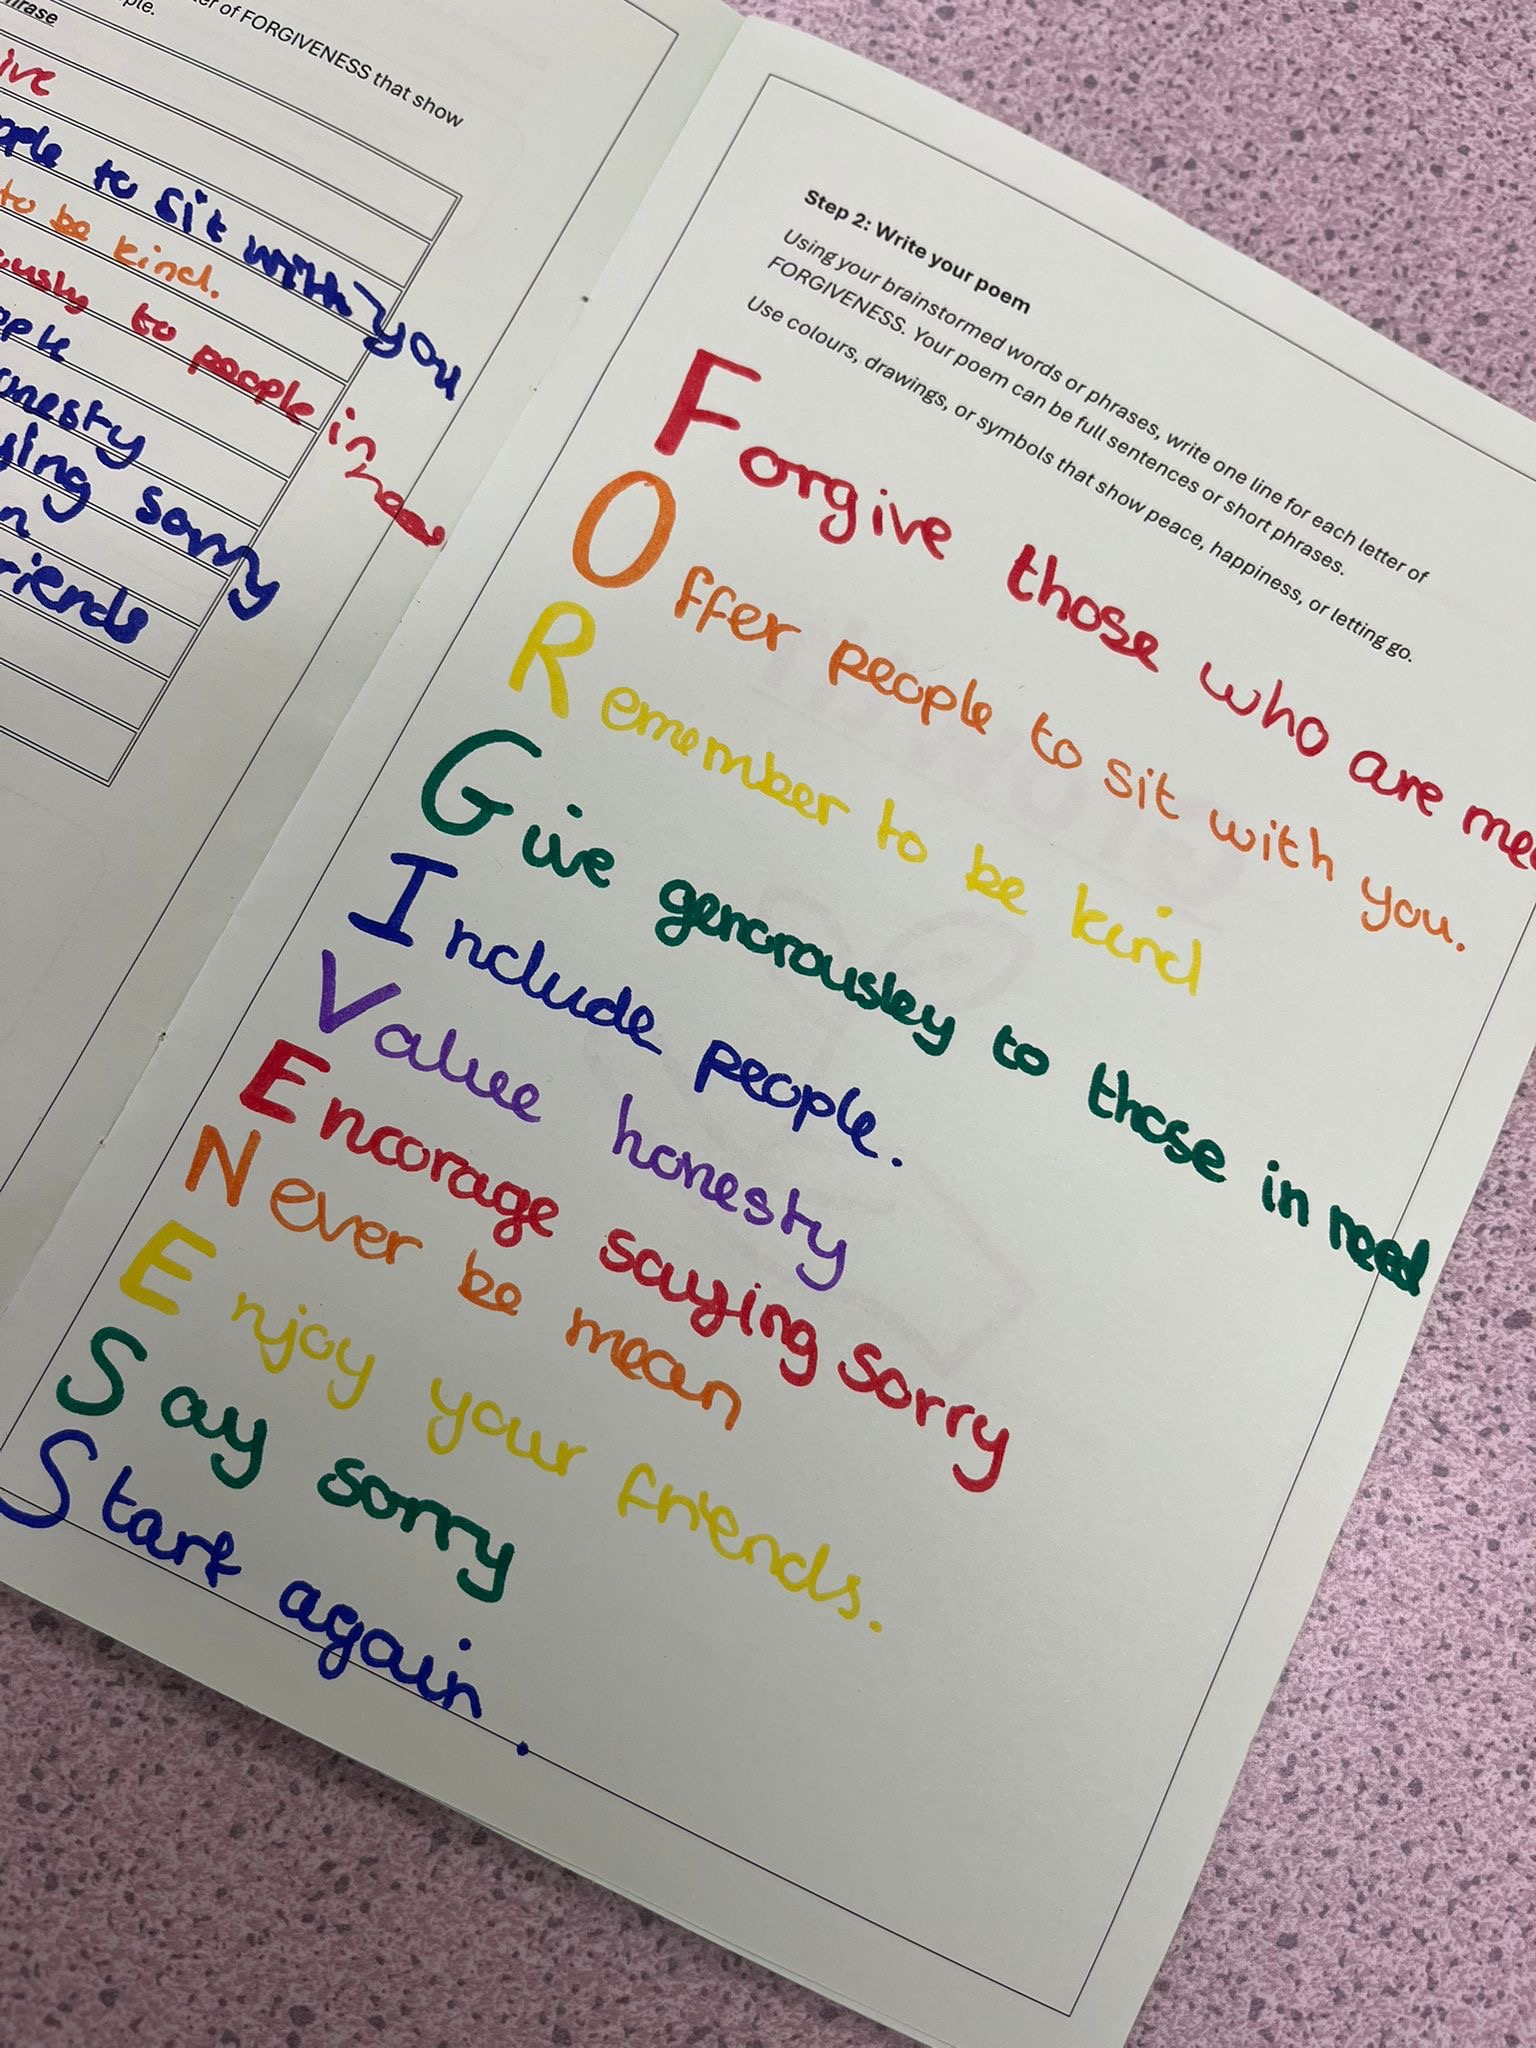 hrase
ter of FORGIVENESS that show
ple.
ive
ople to sit with you
to be kind.
ously to people in need
ople
onesty
ying sorry
n
riends
Step 2: Write your poem
Using your brainstormed words or phrases, write one line for each letter of
FORGIVENESS. Your poem can be full sentences or short phrases.
Use colours, drawings, or symbols that show peace, happiness, or letting go.
Forgive those who are mea
Offer people to sit with you.
Remember to be kind
Give generousley to those in need
Include people.
Value honesty
Encorage saying sorry
Never be mean
Enjoy your friends.
Say sorry
Start again.